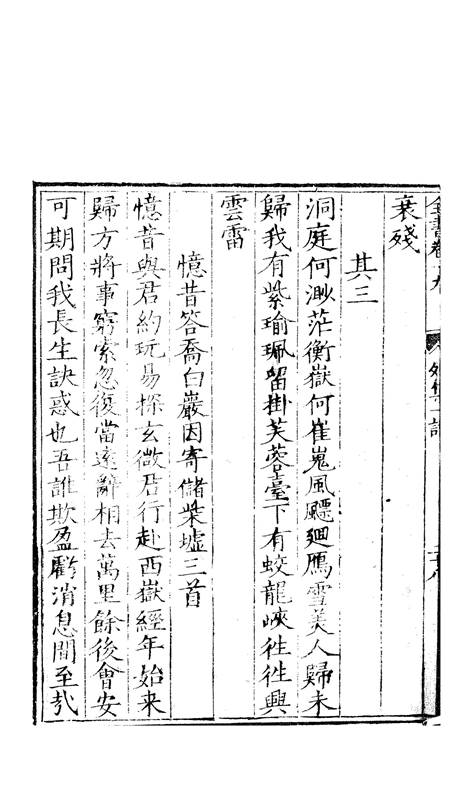 全書卷十九 外集一 詩
衰殘
其三
洞庭何渺茫衡嶽何崔嵬風飃廻鴈雪美人歸未
歸我有紫瑜珮留掛芙蓉臺下有蛟龍峽徃徃興
雲雷
憶昔答喬白巖因寄儲柴墟三首
憶昔與君約玩易探玄微君行赴西嶽經年始来
歸方將事窮索忽復當遠辭相去萬里餘後會安
可期問我長生訣惑也吾誰欺盈虧消息間至㢤